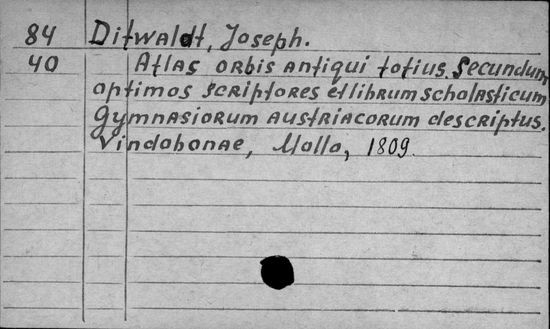 84 Ditwaldt, Joseph.
40 Atlas orbis antiqui totius secundum
optimos scriptores et librum scholasticum
gymnasiorum austriacorum descriptus.
Vindobonae, Mollo, 1809.